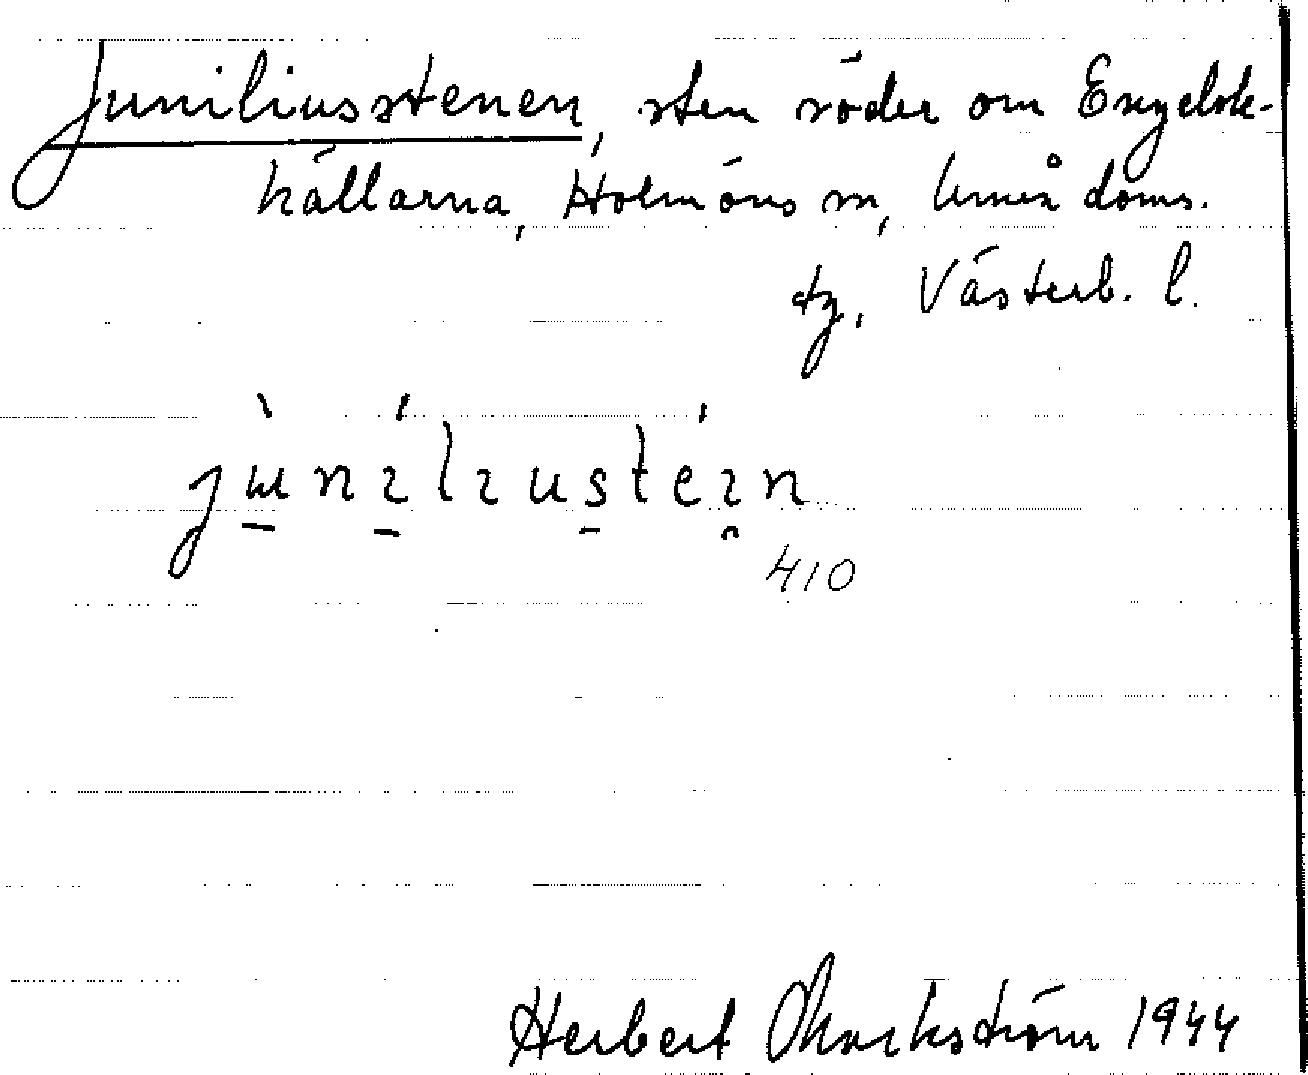 Juniliusstenen, sten söder om Engelsk-
källarna, Holmöns sn, Umeå doms.
tg, Västerb. l.
410
Herbert Markström 1944